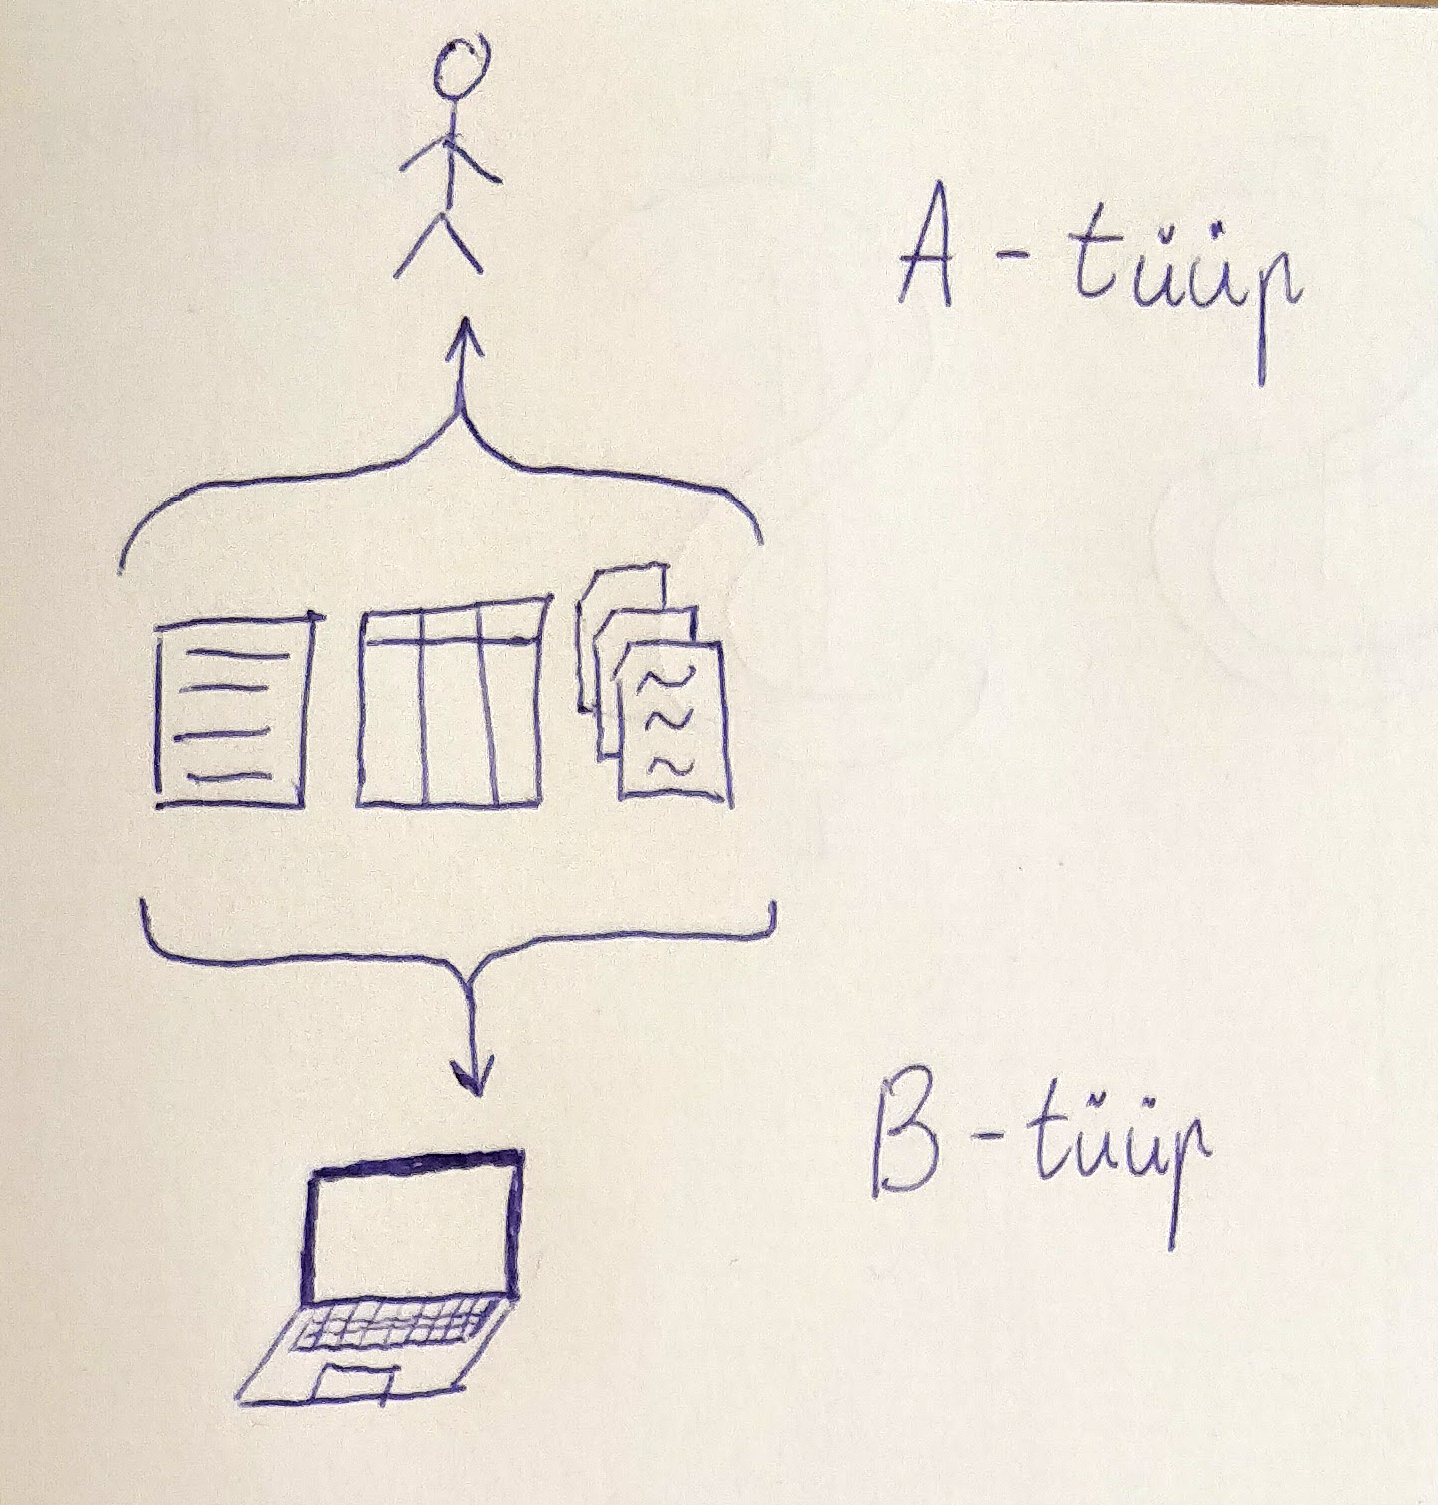 A - tüüp
B - tüüp